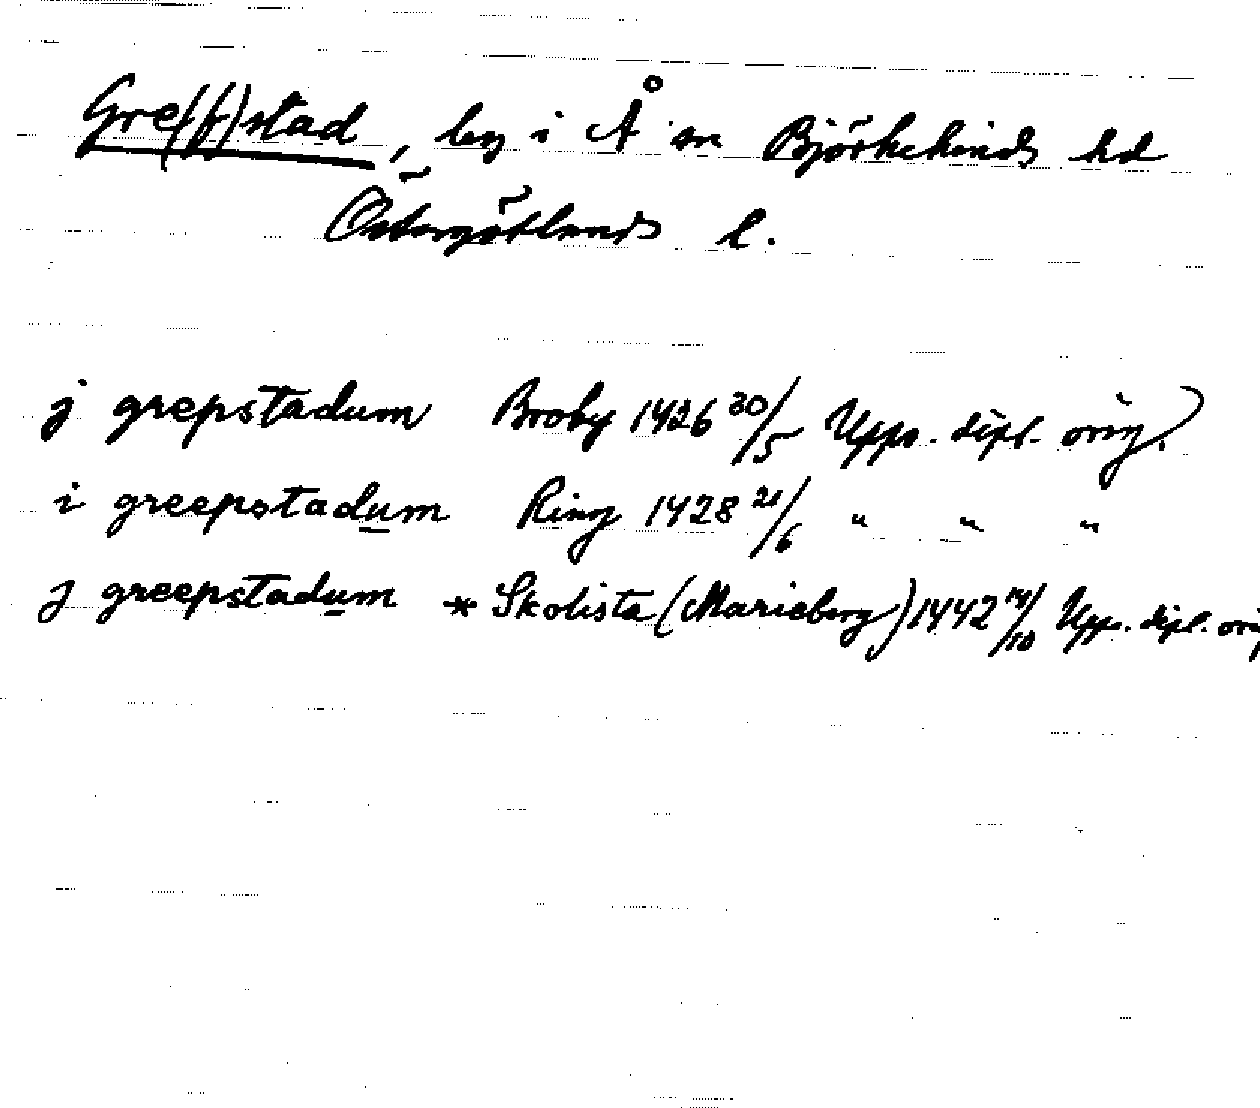 Gref(f)stad, by i Å sn Björkekinds hd
Östergötlands l.
j grepstadum Broby 1426 30/5 Upps. dipl. orig.
i greepstadum Ring 1428 21/6 " " "
j greepstadum * Skolista (Marieberg) 1442 14/10 Upps. dipl. orig